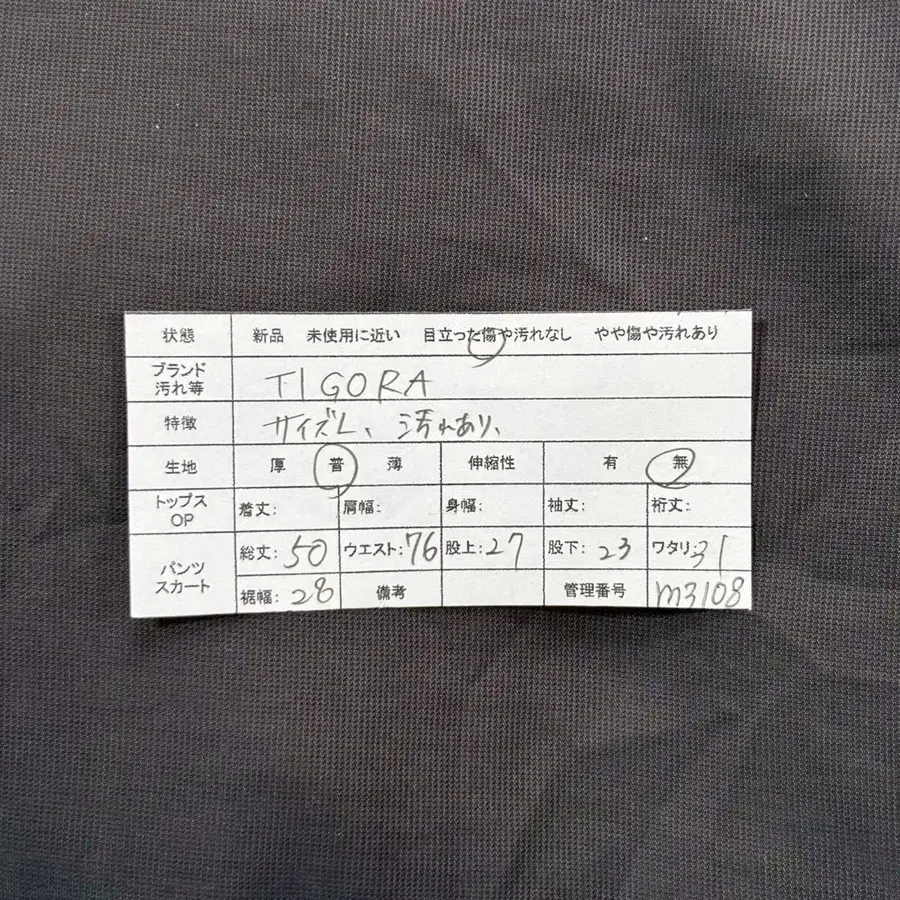 状態 新品 未使用に近い 目立った傷や汚れなし やや傷や汚れあり
ブランド
汚れ等 TIGORA
特徴 サイズL、汚れあり、
生地 厚 普 薄 伸縮性 有 無
トップス
OP 着丈: 肩幅: 身幅: 袖丈: 裄丈:
パンツ
スカート 総丈:50 ウエスト:76 股上:27 股下:23 ワタリ:31
裾幅:28 備考 管理番号 m3108